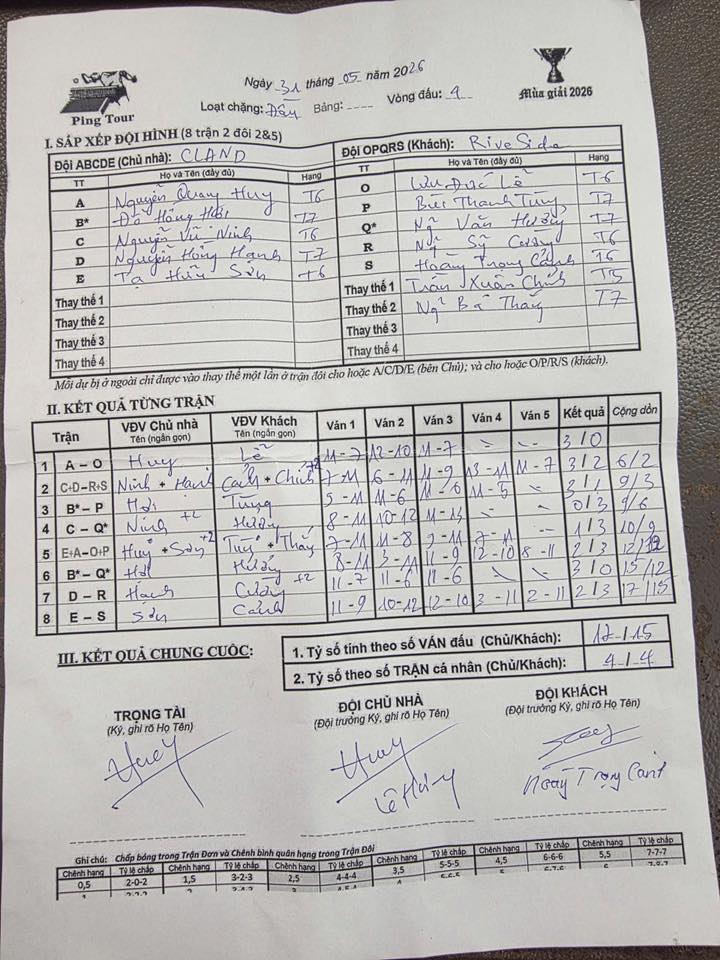 Ping Tour
Ngày 31 tháng 05 năm 2026
Loạt chặng: Đấu Bảng: ---- Vòng đấu: 4
Mùa giải 2026
I. SẮP XẾP ĐỘI HÌNH (8 trận 2 đôi 2&5)
Đội ABCDE (Chủ nhà): CLAND
Đội OPQRS (Khách): RiveSide
TT Họ và Tên (đầy đủ) Hạng
A Nguyễn Quang Huy T6
B* Đỗ Hồng Hải T7
C Nguyễn Vũ Ninh T6
D Nguyễn Hồng Hạnh T7
E Tạ Hữu Sơn T6
Thay thế 1
Thay thế 2
Thay thế 3
Thay thế 4
TT Họ và Tên (đầy đủ) Hạng
O Lưu Đức Lễ T6
P Bùi Thanh Tùng T7
Q* Ng Văn Hướng T7
R Ng Sỹ Cường T6
S Hoàng Trọng Cảnh T6
Thay thế 1 Trần Xuân Chính T5
Thay thế 2 Ng Bá Thắng T7
Thay thế 3
Thay thế 4
Mỗi dự bị ở ngoài chỉ được vào thay thế một lần ở trận đôi cho hoặc A/C/D/E (bên Chủ); và cho hoặc O/P/R/S (khách).
II. KẾT QUẢ TỪNG TRẬN
Trận VĐV Chủ nhà Tên (ngắn gọn) VĐV Khách Tên (ngắn gọn) Ván 1 Ván 2 Ván 3 Ván 4 Ván 5 Kết quả Cộng dồn
1 A – O Huy Lễ 11-7 12-10 11-7 3/0
2 C+D–R+S Ninh + Hạnh Cảnh + Chính +2 7-11 6-11 11-9 13-11 11-7 3/2 6/2
3 B* – P Hải Tùng 9-11 11-6 11-6 11-5 3/1 9/3
4 C – Q* Ninh +2 Hướng 8-11 10-12 11-13 0/3 9/6
5 E+A–O+P Huy + Sơn +2 Tùng + Thắng 7-11 11-8 9-11 7-11 1/3 10/9
6 B* – Q* Hải Hướng 8-11 3-11 11-9 12-10 8-11 2/3 12/12
7 D – R Hạnh Cường +2 11-7 11-6 11-6 3/0 15/12
8 E – S Sơn Cảnh 11-9 10-12 12-10 3-11 2-11 2/3 17/15
III. KẾT QUẢ CHUNG CUỘC:
1. Tỷ số tính theo số VÁN đấu (Chủ/Khách): 17-/15
2. Tỷ số theo số TRẬN cá nhân (Chủ/Khách): 4-/4
TRỌNG TÀI
(Ký, ghi rõ Họ Tên)
Huy
ĐỘI CHỦ NHÀ
(Đội trưởng Ký, ghi rõ Họ Tên)
Huy
ĐỘI KHÁCH
(Đội trưởng Ký, ghi rõ Họ Tên)
Ghi chú: Chấp bóng trong Trận Đơn và Chênh bình quân hạng trong Trận Đôi
Chênh hạng Tỷ lệ chấp Chênh hạng Tỷ lệ chấp Chênh hạng Tỷ lệ chấp Chênh hạng Tỷ lệ chấp Chênh hạng Tỷ lệ chấp Chênh hạng Tỷ lệ chấp
0,5 2-0-2 1,5 3-2-3 2,5 4-4-4 3,5 5-5-5 4,5 6-6-6 5,5 7-7-7